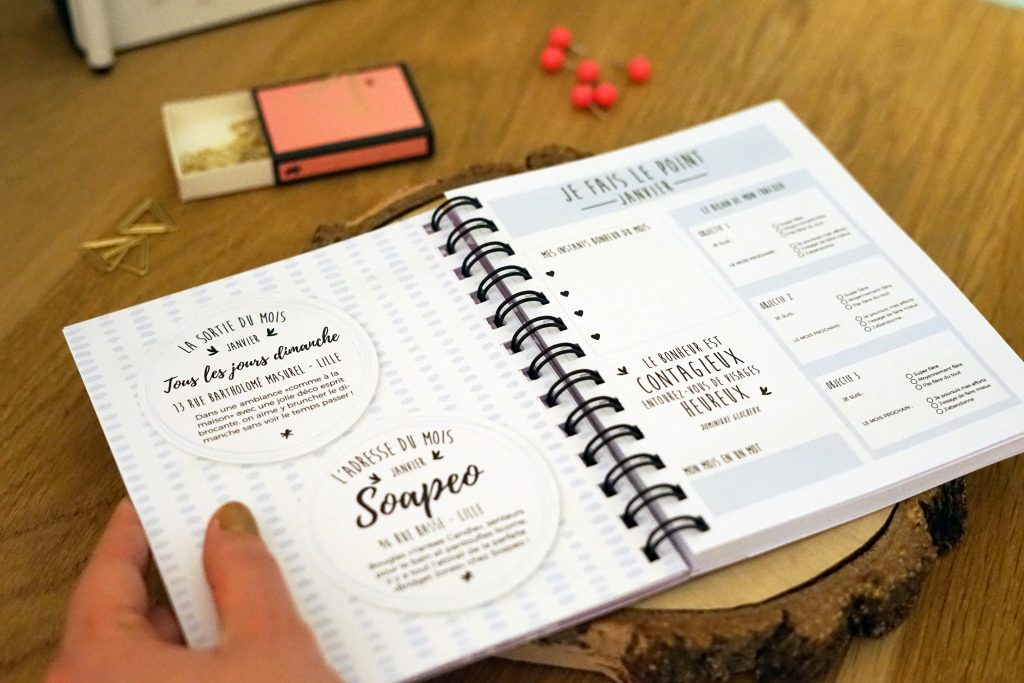 LA SORTIE DU MOIS
JANVIER
Tous les jours dimanche
13 RUE BARTHOLOMÉ MASUREL - LILLE
Dans une ambiance «comme à la
maison» avec une jolie déco esprit
brocante, on aime y bruncher le di-
manche sans voir le temps passer !
L'ADRESSE DU MOIS
JANVIER
Soapeo
46 RUE BASSE - LILLE
Bougies «Yankee Candle», senteurs
pour le bain et pantoufles licorne
il y a tout l'attirail de la parfaite
chez Soapeo !
JE FAIS LE POINT
JANVIER
MES INSTANTS BONHEUR DU MOIS
LE BONHEUR EST
CONTAGIEUX
ENTOUREZ-VOUS DE VISAGES
HEUREUX
DOMINIQUE GLOCHEUX
MON MOIS EN UN MOT
LE BILAN DE MON TABLEAU
OBJECTIF 1
JE SUIS :
Super fière
Moyennement fière
Pas fière du tout
LE MOIS PROCHAIN :
Je poursuis mes efforts
J'essaye de faire mieux
J'abandonne
OBJECTIF 2
JE SUIS :
Super fière
Moyennement fière
Pas fière du tout
LE MOIS PROCHAIN :
Je poursuis mes efforts
J'essaye de faire mieux
J'abandonne
OBJECTIF 3
JE SUIS :
Super fière
Moyennement fière
Pas fière du tout
LE MOIS PROCHAIN :
Je poursuis mes efforts
J'essaye de faire mieux
J'abandonne